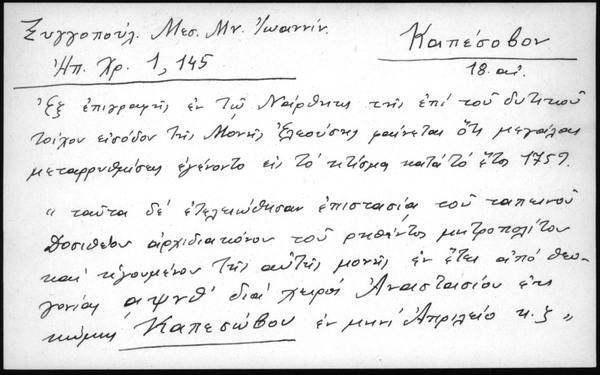 Ξυγγοπούλ. Μεσ. Μν. Ἰωαννίν.
Ἠπ. Χρ. 1, 145
Καπέσοβον
18. αἰ.
Ἐξ ἐπιγραφῆς ἐν τῷ Νάρθηκι τῆς ἐπί τοῦ δυτικοῦ
τοίχου εἰσόδου τῆς Μονῆς Ἐλεούσης φαίνεται ὅτι μεγάλαι
μεταρρυθμίσεις ἐγένοντο εἰς τό κτίσμα κατά τό ἔτος 1759.
" ταῦτα δέ ἐτελειώθησαν ἐπιστασία τοῦ ταπεινοῦ
Δοσιθέου ἀρχιδιακόνου τοῦ ρηθέντος μητροπολίτου
καί ἡγουμένου τῆς αὐτῆς μονῆς ἐν ἔτει ἀπό θεο-
γονίας αψνθ' διά χειρός Ἀναστασίου ἐκ
κώμης Καπεσώβου ἐν μηνί Ἀπριλείο κ. ξ "